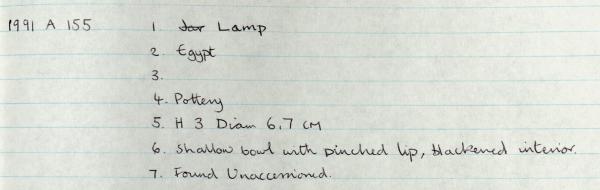 1991 A 155 1 Jar Lamp
2. Egypt
3.
4. Pottery
5. H 3 Diam 6.7 CM
6. Shallow bowl with pinched lip, blackened interior.
7. Found Unaccessioned.